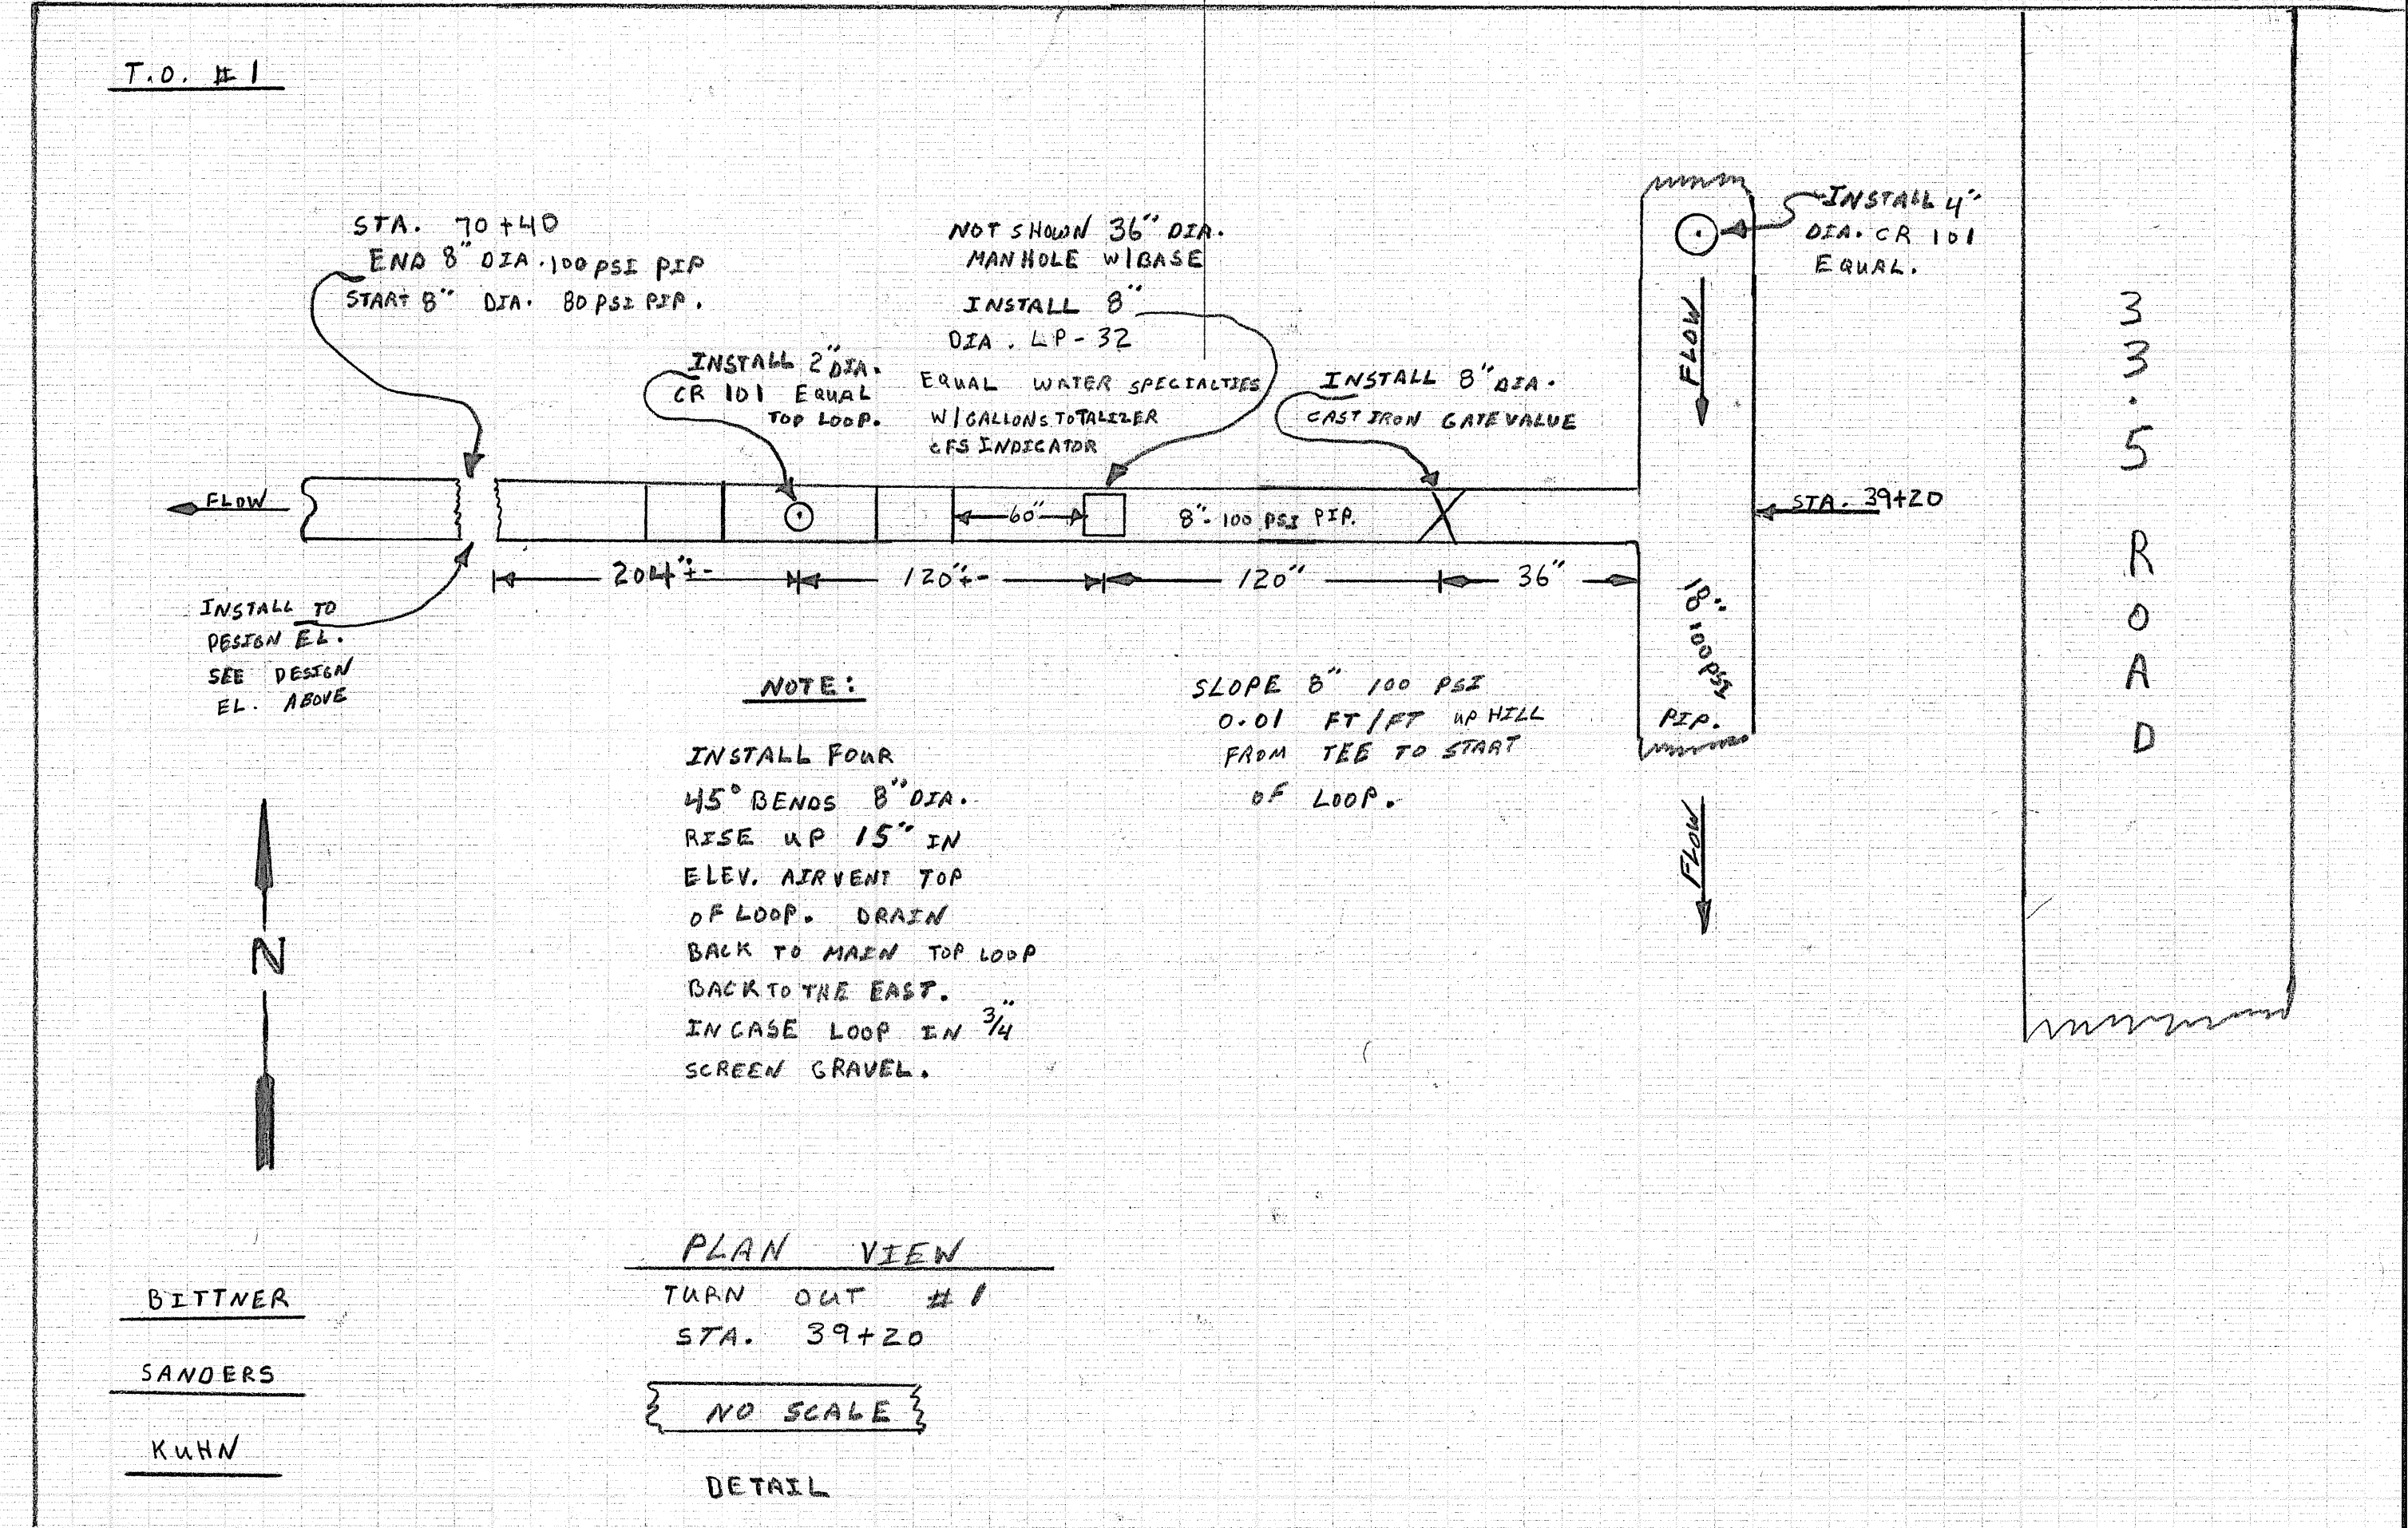 T.O. #1
STA. 70+40
END 8" DIA. 100 PSI PIP
START 8" DIA. 80 PSI PIP.
NOT SHOWN 36" DIA.
MANHOLE W/BASE
INSTALL 8"
DIA. LP-32
EQUAL WATER SPECIALTIES
W/GALLONS TOTALIZER
CFS INDICATOR
INSTALL 4"
DIA. CR 101
EQUAL.
INSTALL 2" DIA.
CR 101 EQUAL
TOP LOOP.
INSTALL 8" DIA.
CAST IRON GATE VALUE
FLOW
33.5 ROAD
FLOW
60"
8"- 100 PSI PIP.
STA. 39+20
204"+-
120"+-
120"
36"
18" 100 PSI
PIP.
INSTALL TO
DESIGN EL.
SEE DESIGN
EL. ABOVE
NOTE:
INSTALL FOUR
45° BENDS 8" DIA.
RISE UP 15" IN
ELEV. AIR VENT TOP
OF LOOP. DRAIN
BACK TO MAIN TOP LOOP
BACK TO THE EAST.
INCASE LOOP IN 3/4"
SCREEN GRAVEL.
SLOPE 8" 100 PSI
0.01 FT/FT UP HILL
FROM TEE TO START
OF LOOP.
FLOW
N
PLAN VIEW
TURN OUT #1
STA. 39+20
NO SCALE
DETAIL
BITTNER
SANDERS
KUHN